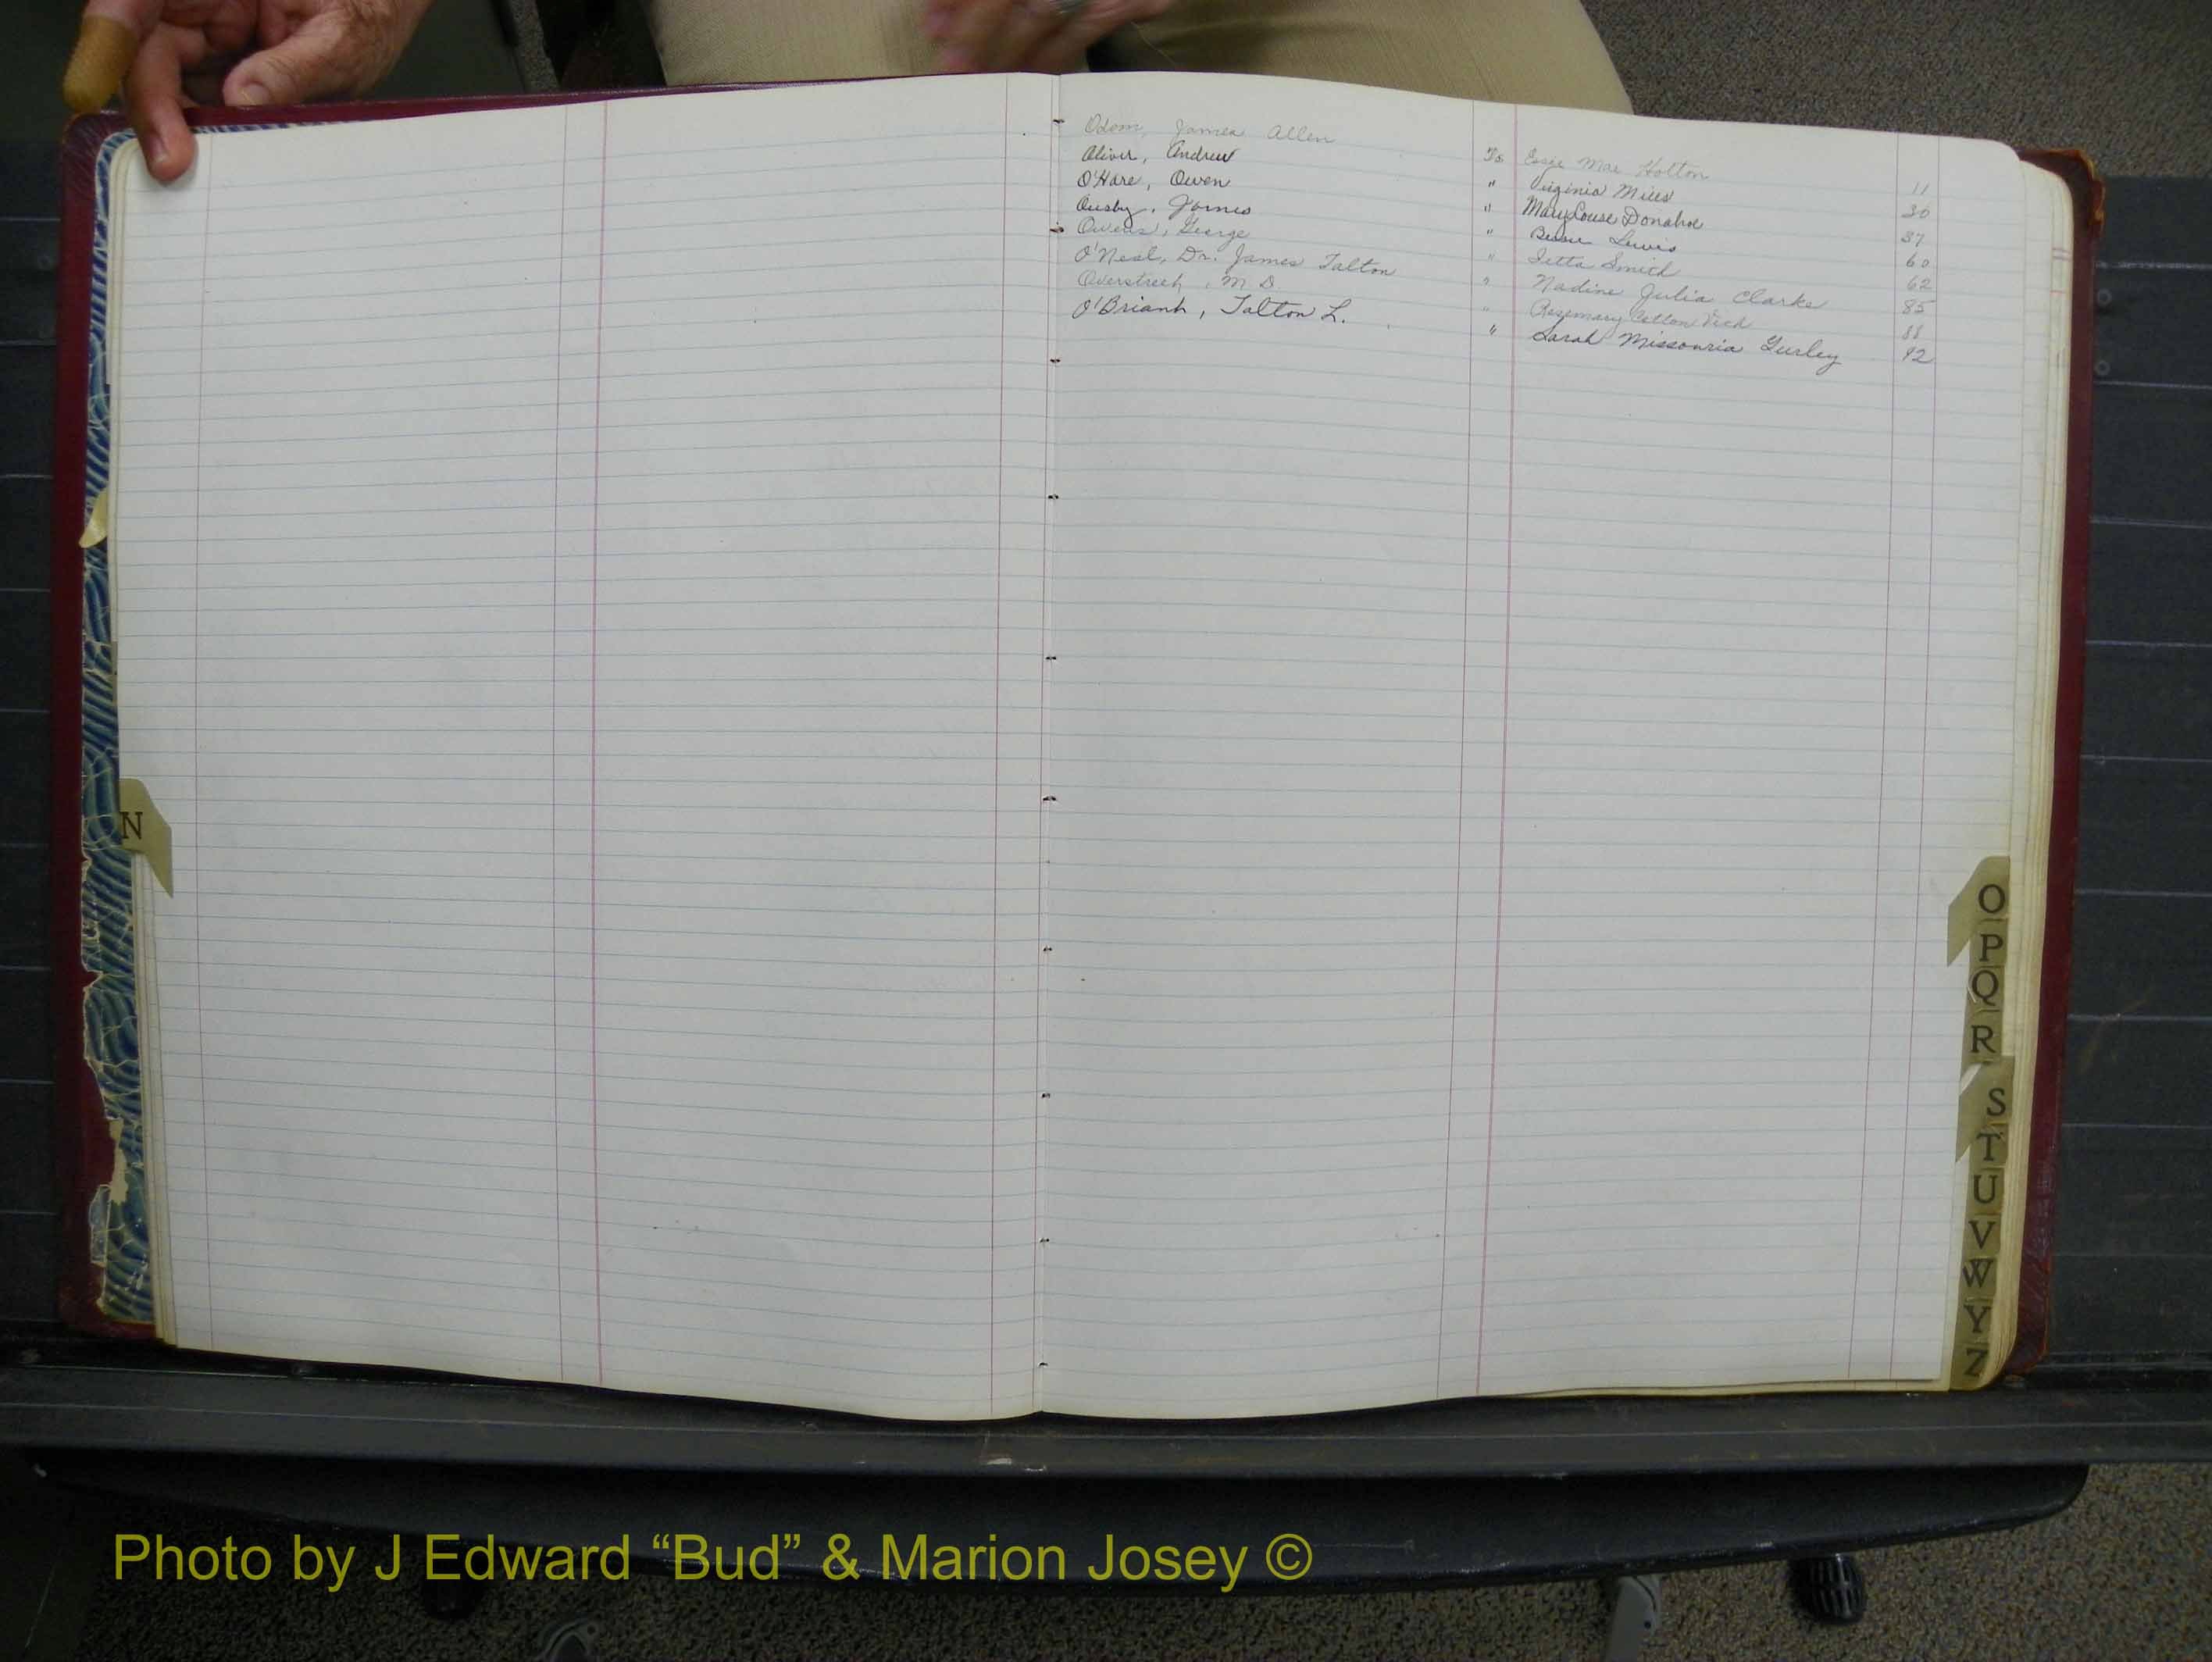 Odom, James Allen To Essie Mae Holton 11
Oliver, Andrew " Virginia Mills 36
O'Hare, Owen " Mary Louise Donahoe 37
Ousby, James " Bessie Lewis 60
Owens, George " Smith 62
O'Neal, Dr. James Talton " Nadine Julia Clarke 85
Overstreet, M D " Rosemary 88
O'Briant, Talton L. " Sarah Missouria Gurley 92
N
O
P
Q
R
S
T
U
V
W
Y
Z
Photo by J Edward “Bud” & Marion Josey ©